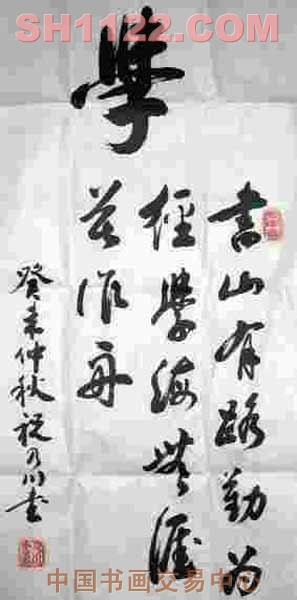 SH1122.COM
學
書山有路勤为
經學海無涯
苦作舟
癸未仲秋祝乃川书
中国书画交易中心